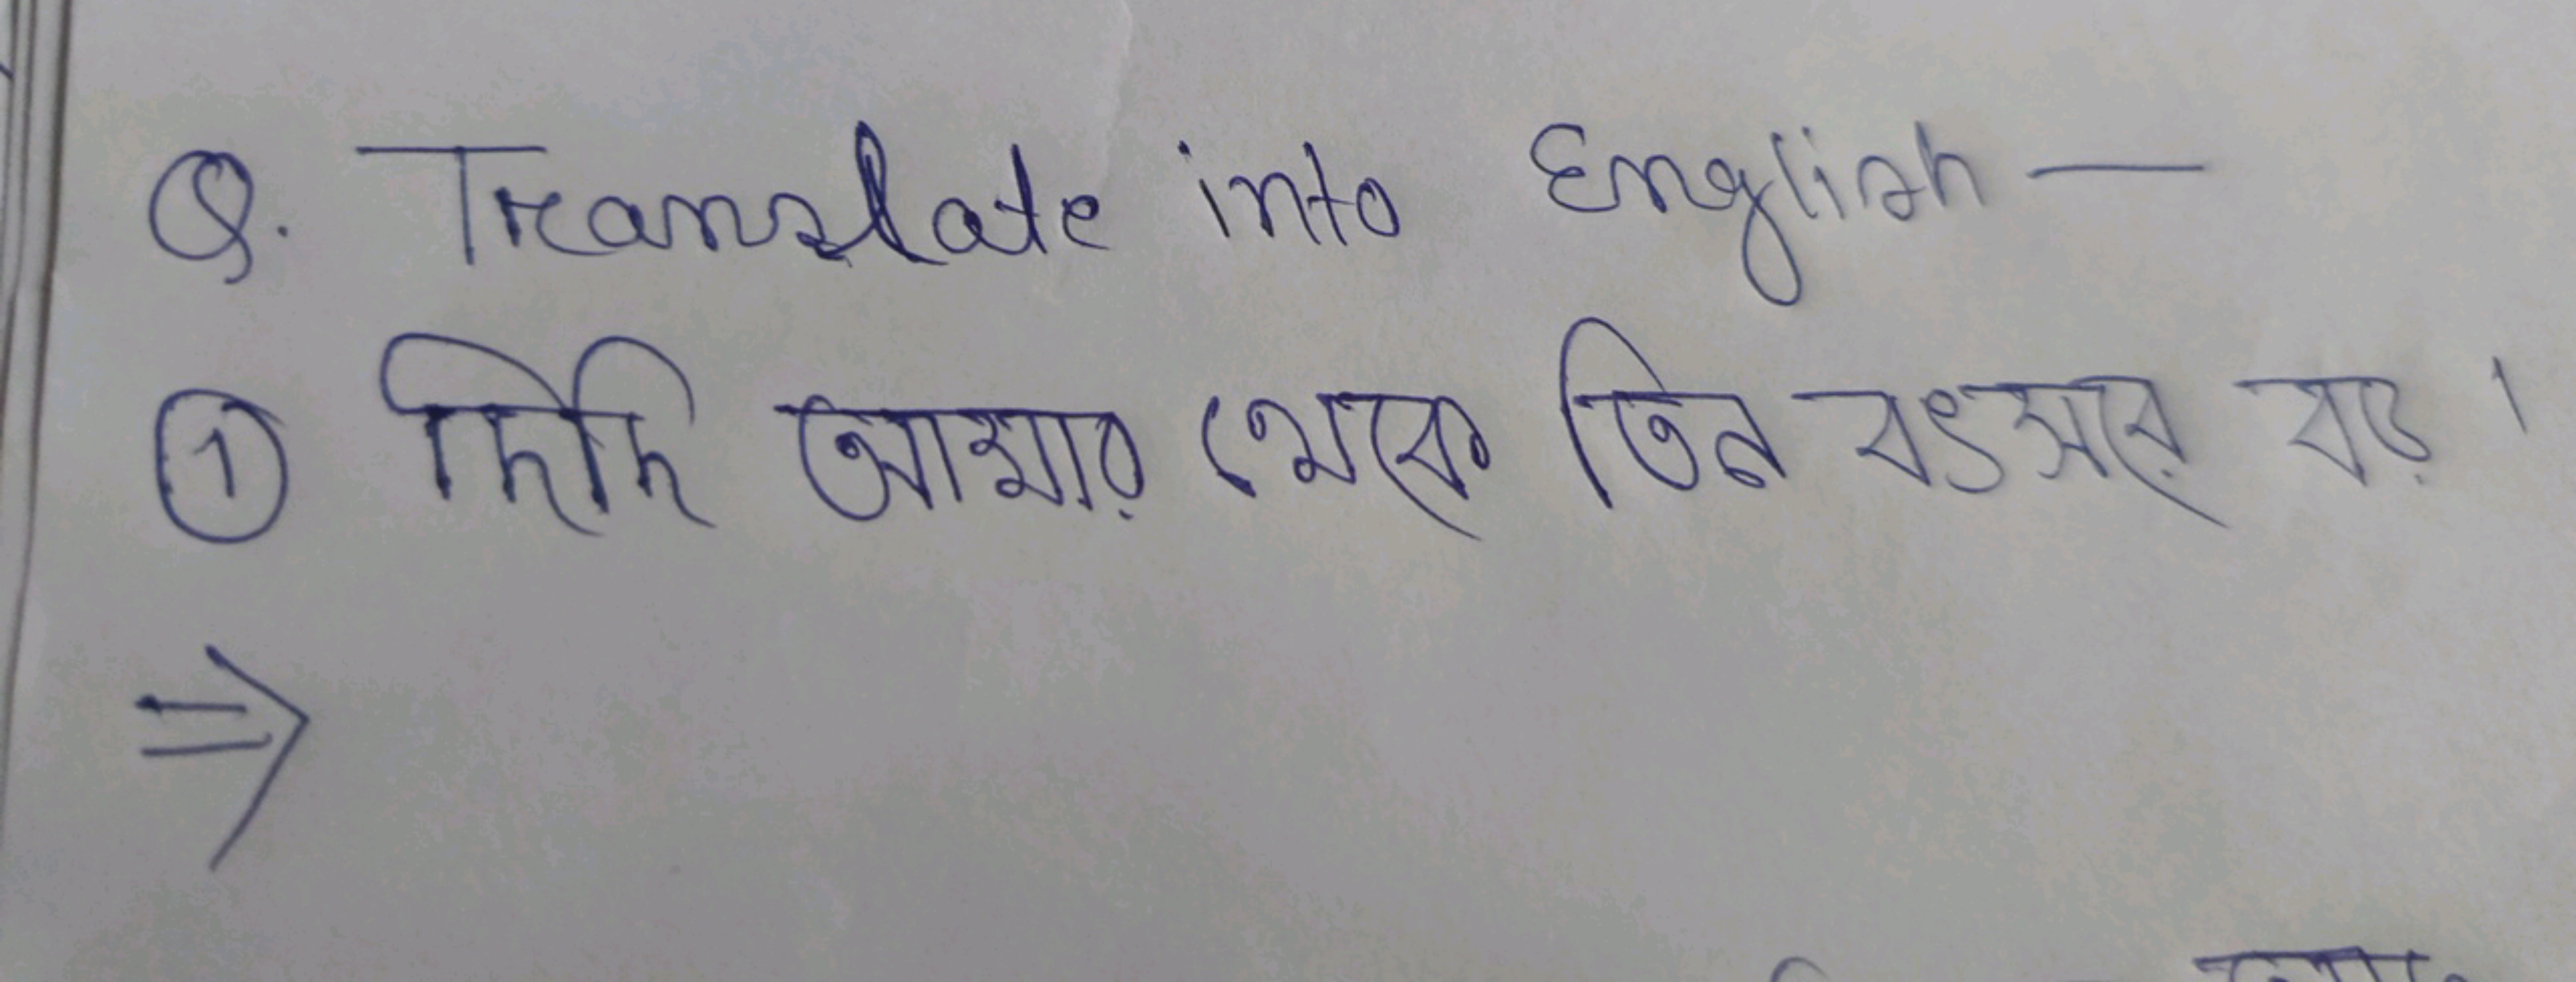 Q. Translate into English —
① দিদি আমার থেকে তিন বৎসরের বড়।
⇒